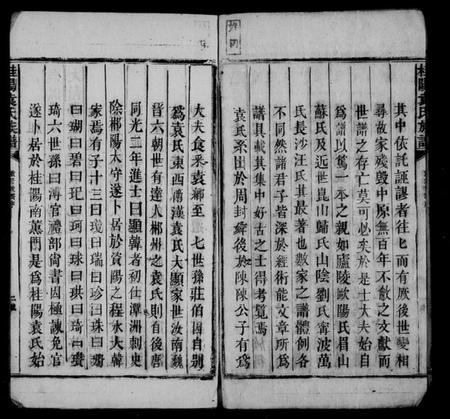 桂陽袁氏族譜
其中依託誣謬者往匕而有厥後世變相
尋故家殘毀中原無百年不散之文獻而
世譜之存亡莫可必矣於是士大夫始自
為譜以篤一本之親如廬陵歐陽氏眉山
蘇氏及近世崑山歸氏山陰劉氏甯波萬
氏長沙汪氏其最著也數家之譜體例各
不同然諸君子皆深於經術能文章所為
譜具載其集中好古之士得考覽焉
袁氏系出於周封緯後於陳陳公子有為
大夫食釆袁鄉至 七世孫莊伯因自別
為袁氏東西漢袁氏大顯家世汝南魏
晉六朝世有達人郴州之袁氏則自後唐
同光二年進士曰顯韓者初仕潭洲刺史
除郴陽太守遂卜居於資陽之程水大韓
家焉有子十三曰璣曰瑞曰珍曰珠曰瓚
曰瑚曰碧曰玘曰珂曰珠曰珙曰琦曰
琦六世孫曰溥官禮部尚書因極諫免官
遂卜居於桂陽南薰門是為桂陽袁氏始
桂陽袁氏族譜